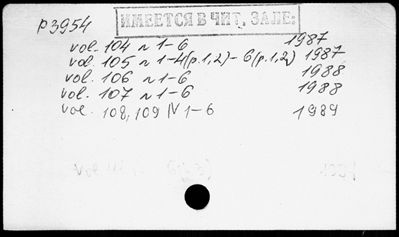 р3954
ИМЕЕТСЯ В ЧИТ. ЗАЛЕ:
vol. 104 n 1-6 1987
vol 105 n 1-4(p.1,2)-6(p.1,2) 1987
vol. 106 n 1-6 1988
vol. 107 n 1-6 1988
vol. 108,109 N 1-6 1989